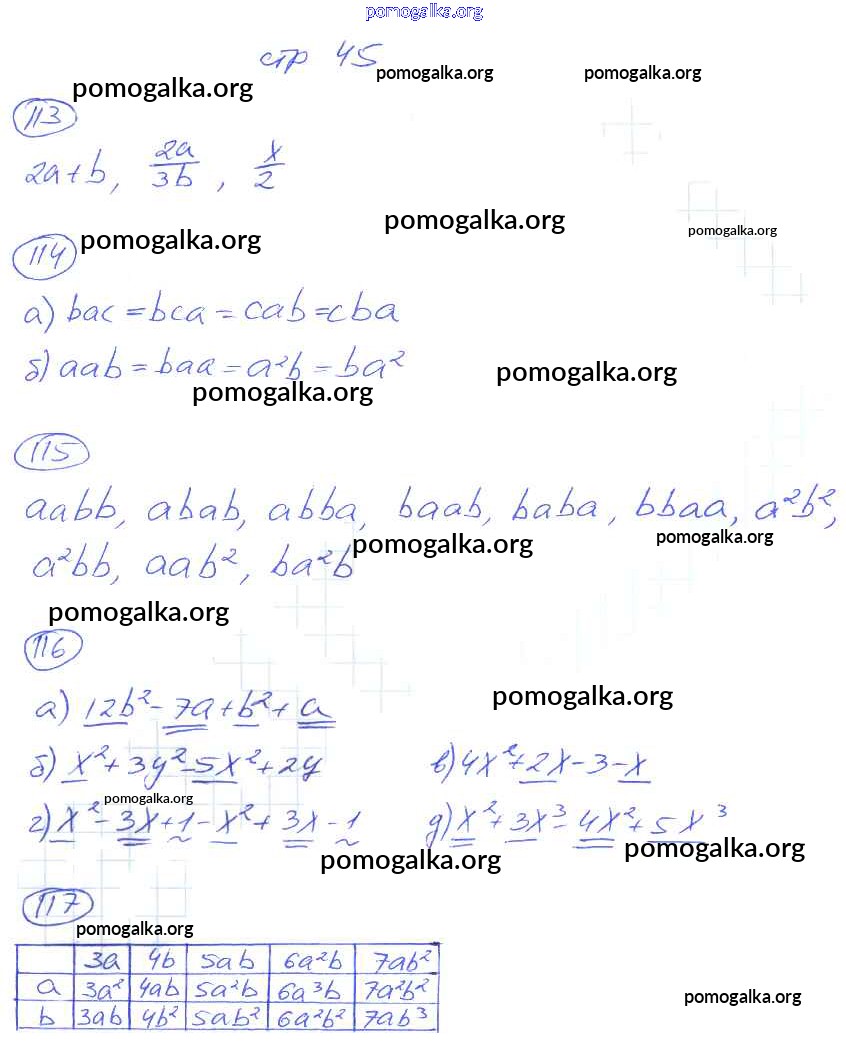 pomogalka.org
стр 45
pomogalka.org pomogalka.org pomogalka.org
113
2a+b, 2a/3b, x/2
pomogalka.org
pomogalka.org
114 pomogalka.org
а) bac = bca = cab = cba
б) aab = baa = a²b = ba²
pomogalka.org
pomogalka.org
115
aabb, abab, abba, baab, baba, bbaa, a²b²,
pomogalka.org
a²bb, aab², ba²b
pomogalka.org
pomogalka.org
116
pomogalka.org
а) 12b² - 7a + b² + a
б) x² + 3y² - 5x² + 2y в) 4x² + 2x - 3 - x
pomogalka.org
г) x² - 3x + 1 - x² + 3x - 1 д) x² + 3x³ - 4x² + 5x³
pomogalka.org pomogalka.org
117
pomogalka.org
3a 4b 5ab 6a²b 7ab²
a 3a² 4ab 5a²b 6a³b 7a²b²
pomogalka.org
b 3ab 4b² 5ab² 6a²b² 7ab³